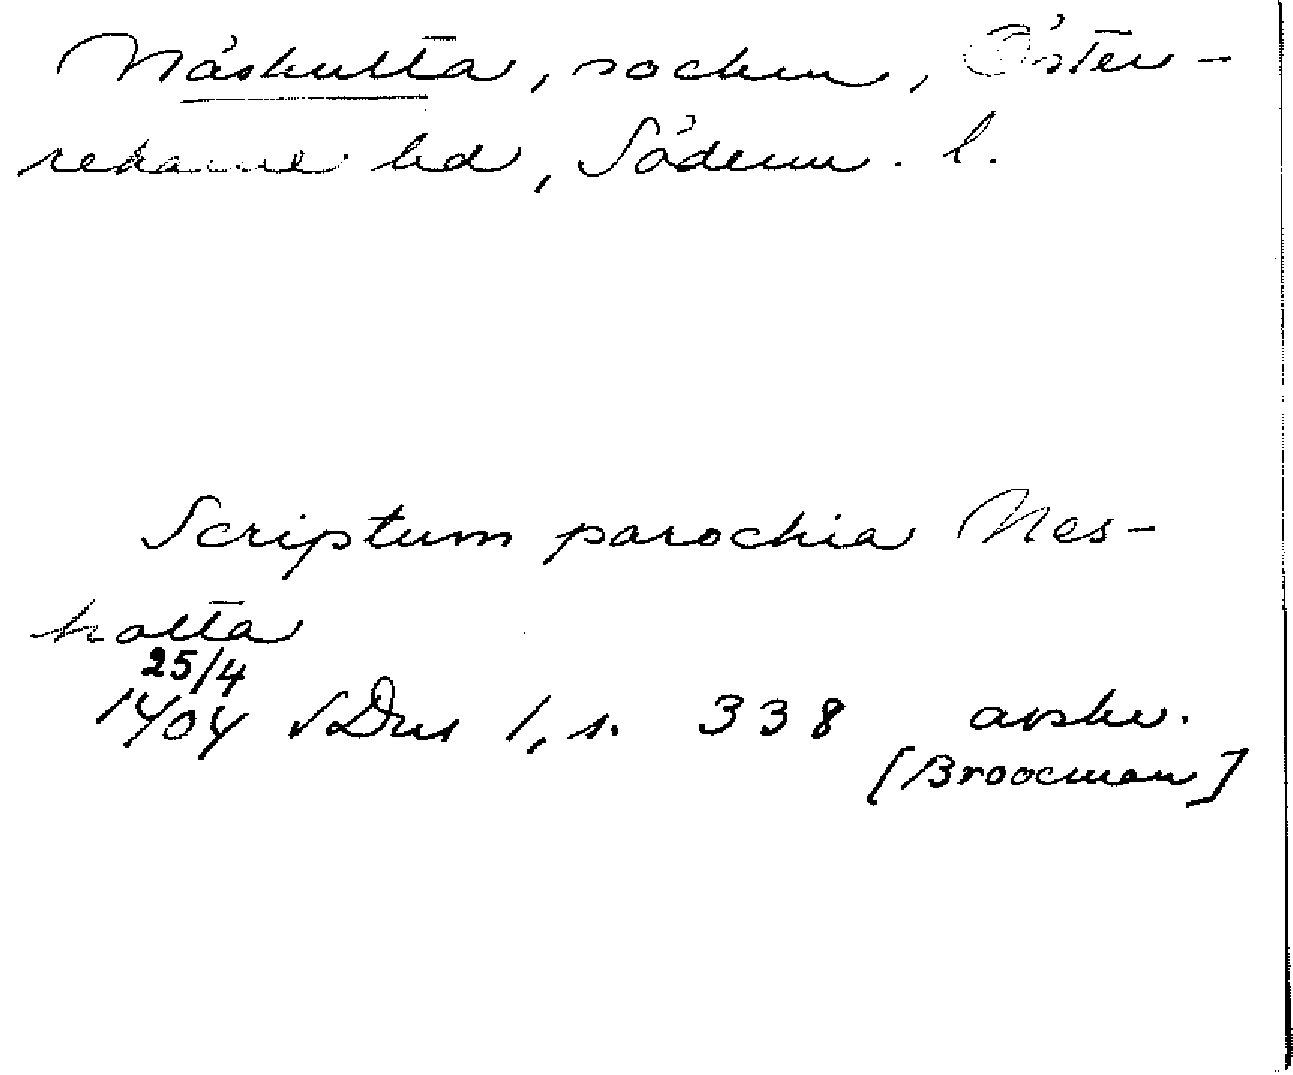 Näshulta, socken, Öster-
rekarne hd, Söderm. l.
Scriptum parochia Nes-
holta
25/4
1404 SDns 1, s. 338 avskr.
[Broocman]